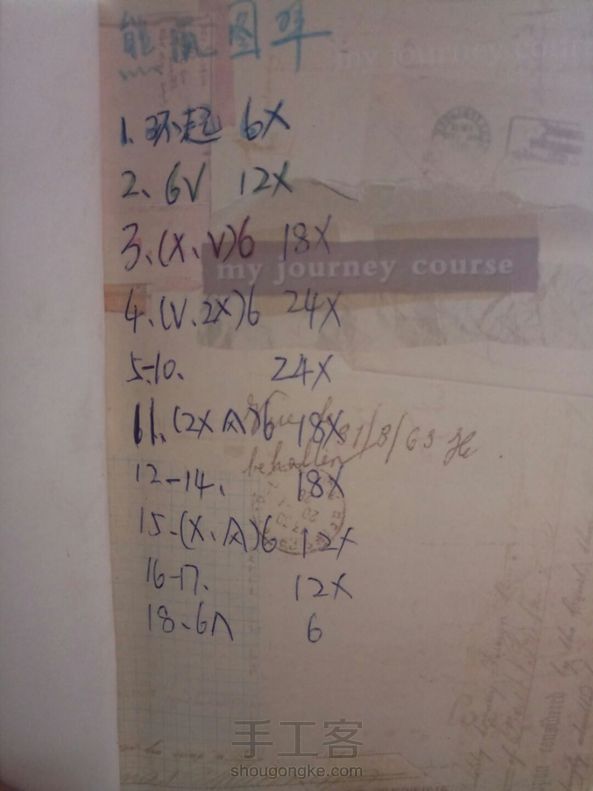 熊瓶图单
my journey course
1、环起 6X
2、6V 12X
3、(X、V)6 18X
my journey course
4、(V、2X)6 24X
5-10、 24X
11、(2X A)6 18X
12-14、 18X
15、(X、A)6 12X
16-17、 12X
18、6Λ 6
手工客
shougongke.com